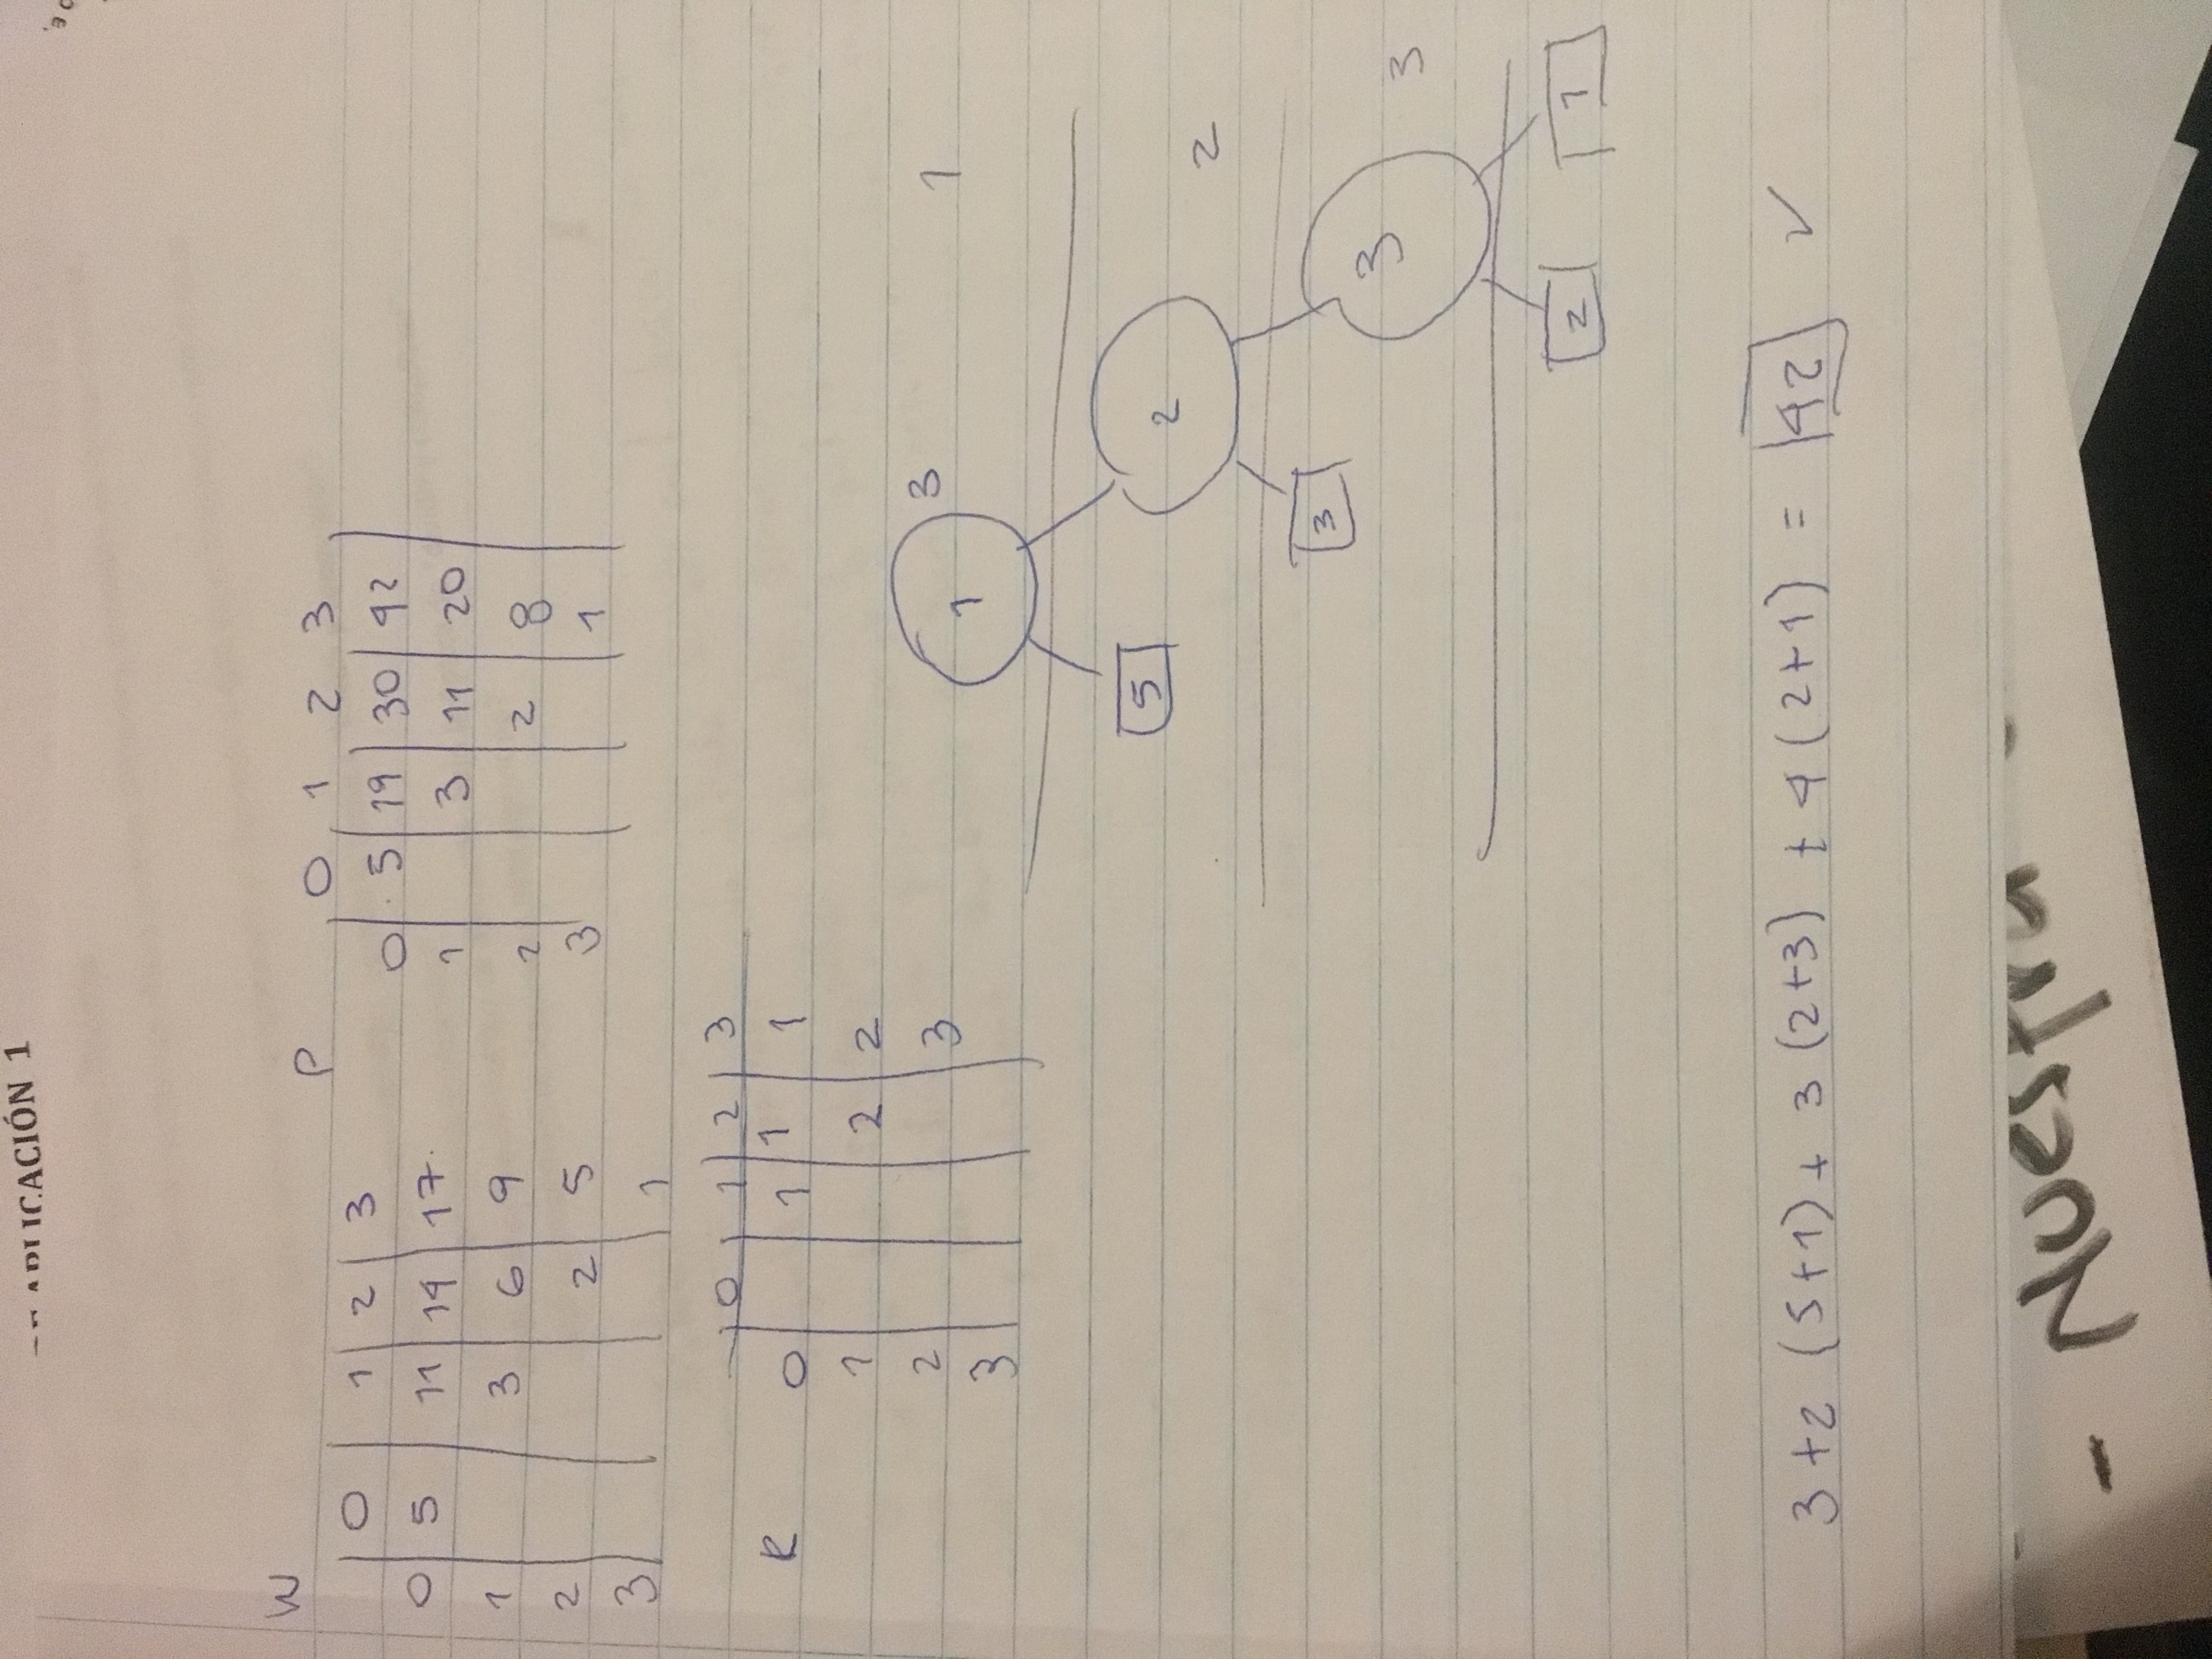 APLICACIÓN 1
W
0 1 2 3
0 5 11 14 17
1 3 6 9
2 2 5
3 1
P 0 1 2 3
0 5 19 30 42
1 3 11 20
2 2 8
3 1
R 0 1 2 3
0 1 1 1
1 2 2
2 3
3
1 3 1
5 2 2
3 3 3
2 1
3 + 2 (5+1) + 3 (2+3) + 4 (2+1) = 42 ✓
- Nuestra